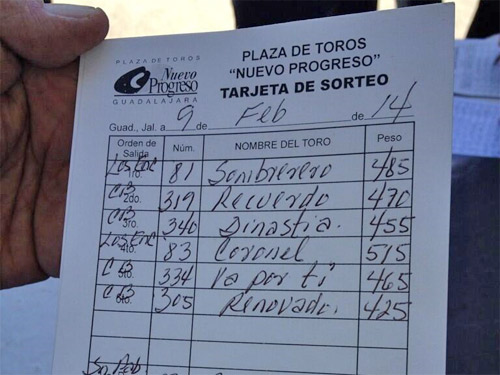 PLAZA DE TOROS
Nuevo
Progreso
GUADALAJARA
PLAZA DE TOROS
"NUEVO PROGRESO"
TARJETA DE SORTEO
Guad., Jal. a 9 de Feb de 14
Orden de Salida Núm. NOMBRE DEL TORO Peso
Los Enc. 1ro. 81 Sombrerero 485
CB 2do. 319 Recuerdo 470
CB 3ro. 340 Dinastia. 455
Los Enc. 4to. 83 Coronel 515
CB 5to. 334 Va por ti 465
CB 6to. 305 Renovado. 425